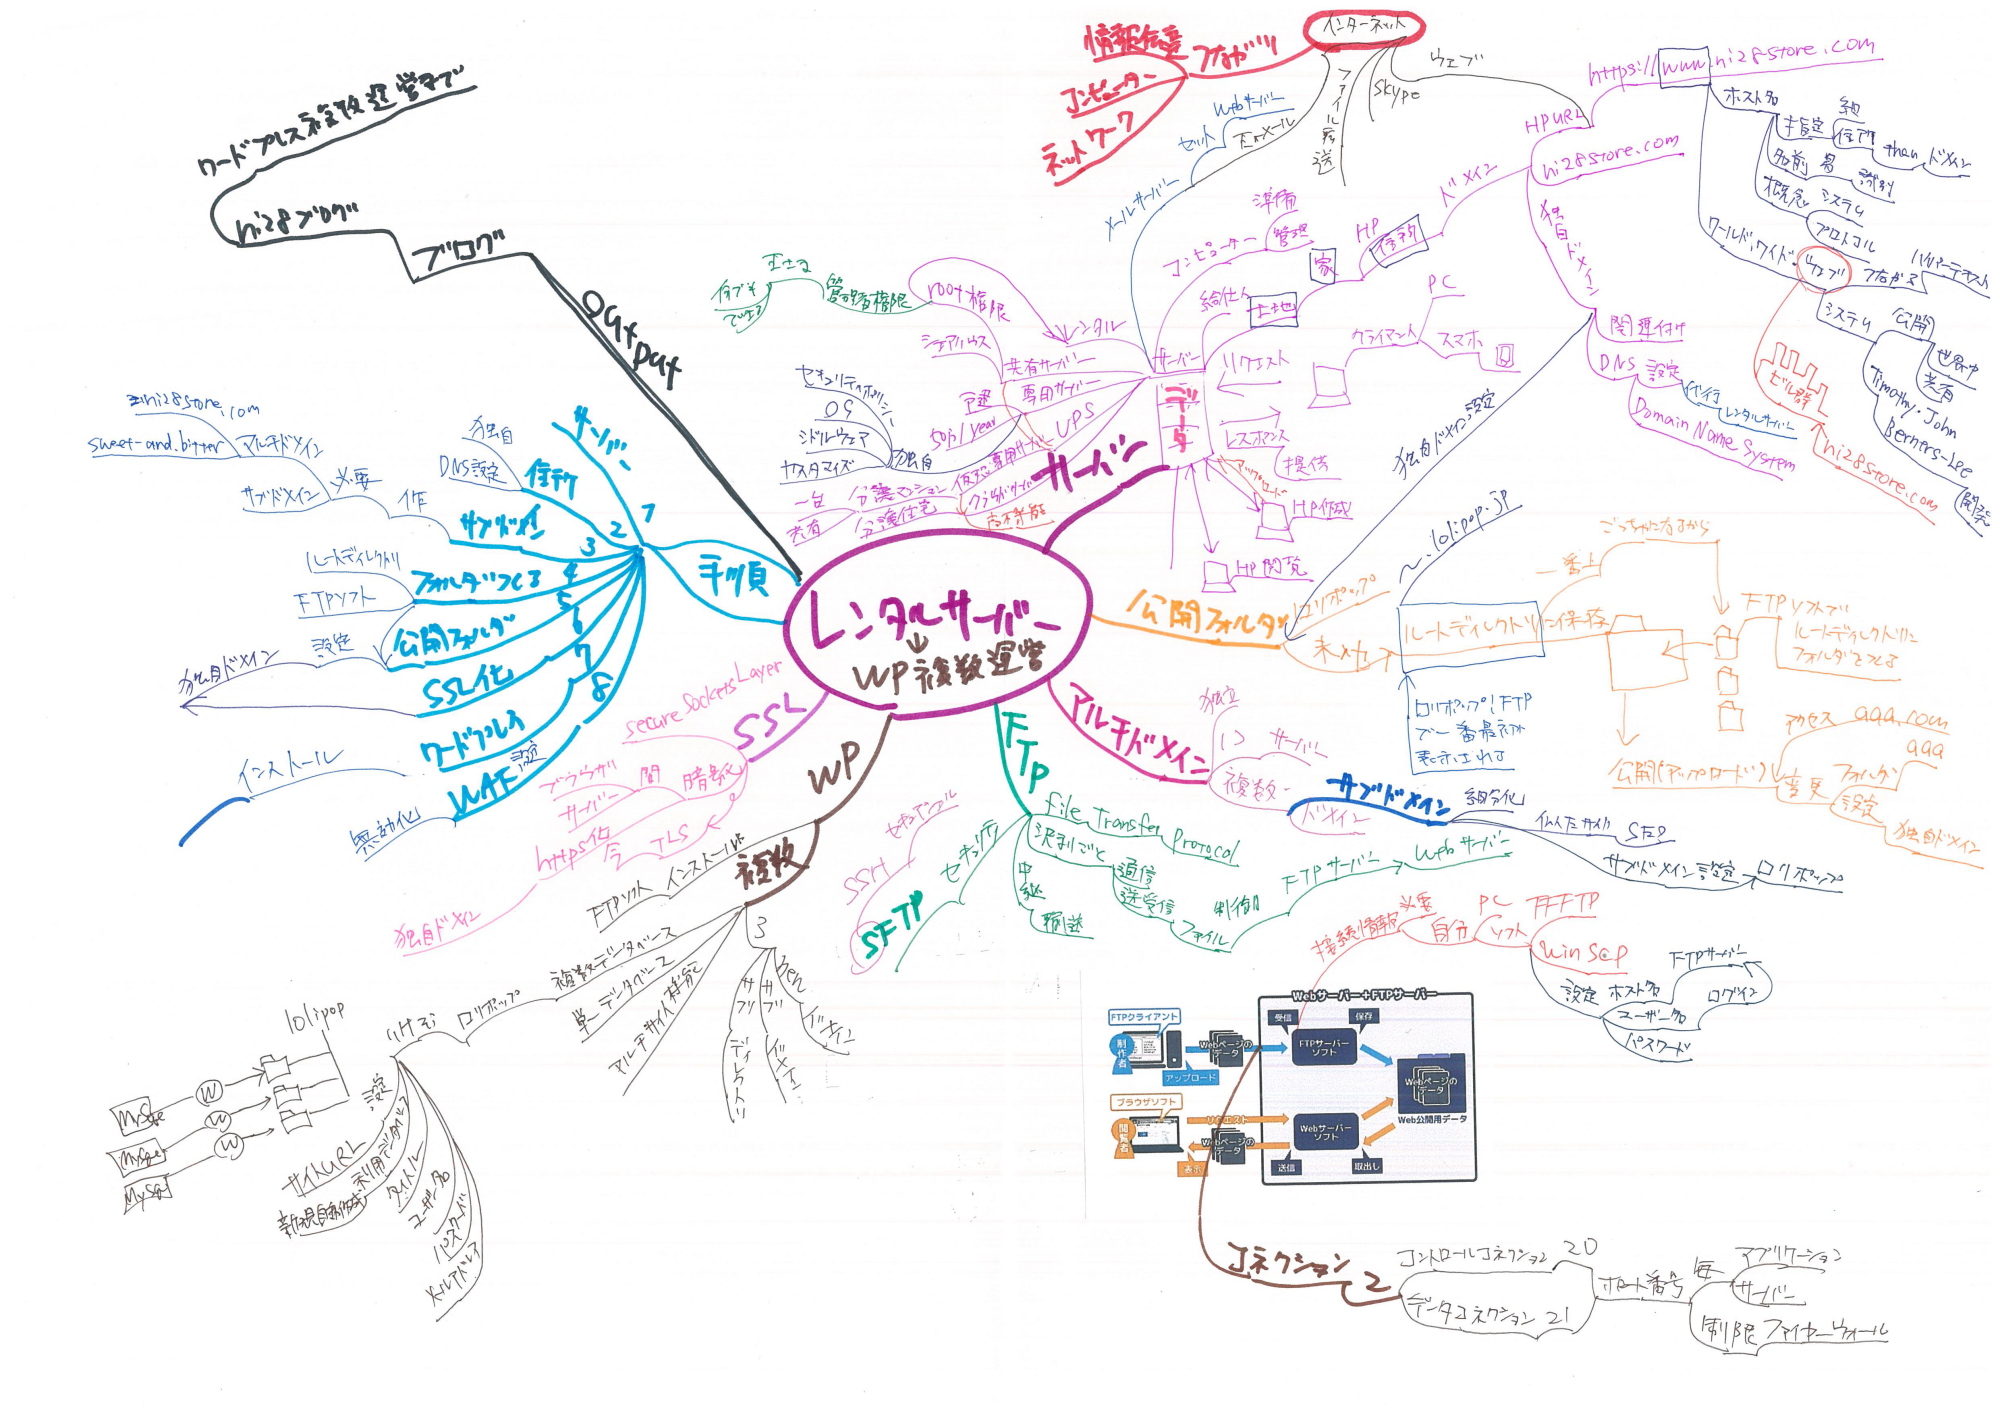 レンタルサーバー
WP 複数運営
Output
ブログ
hi28ブログ
ワードプレス複数運営まで
手順
1
サーバー
2
住所
DNS設定
独自
3
サブドメイン
作
必要
マルチドメイン
サブドメイン
hi28store.com
sweet-and.bitter
4
フォルダつくる
ルートディレクトリ
FTPソフト
5
公開フォルダ
設定
独自ドメイン
6
SSL化
7
ワードプレス
インストール
8
WAF 設定
無効化
SSL
secure Sockets Layer
ブラウザ
サーバー
間
暗号化
https化
今
TLS
独自ドメイン
WP
複数
インストール
FTPソフト
複数データベース
ロリポップ
単一データベース
マルチサイト機能
3
サブ
ディレクトリ
サブ
ドメイン
ドメイン
設定
サイトURL
新規自動作成
利用データベース
タイトル
ユーザー名
パスワード
メールアドレス
lolipop
W
W
W
MySqe
MySqe
MySql
FTP
File Transfer Protocol
決まりごと
通信
送受信
ファイル
制御
FTPサーバー
Webサーバー
中継
転送
セキュリティ
SFTP
SSH
セキュアシェル
マルチドメイン
独立
1つ サーバー
複数
ドメイン
サブドメイン
細分化
SEO
サブドメイン設定
ロリポップ
公開フォルダ
ロリポップ
独自ドメイン設定
~.lolipop.jp
ルートディレクトリ
に保存
一番上
ごっちゃになるから
ロリポップ!FTP
で一番最初に
表示される
FTPソフトで
ルートディレクトリに
フォルダをつくる
公開(アップロード)
アクセス aaa.com
変更
フォルダ aaa
設定
独自ドメイン
サーバー
データ
サーバー
レンタル
root権限
管理者権限
共有サーバー
シェアハウス
専用サーバー
戸建
50万/year
VPS
仮想専用サーバー
分譲マンション
一台
共有
クラウドサーバー
分譲住宅
高機能
独自
セキュリティポリシー
OS
ミドルウェア
カスタマイズ
メールサーバー
セット
Webサーバー
Eメール
コンピューター
準備
管理
給仕人
土地
家
HP
住所
ドメイン
リクエスト
クライアント
PC
スマホ
レスポンス
提供
アップロード
HP作成
HP閲覧
インターネット
つながり
情報伝達
コンピューター
ネットワーク
ファイル転送
Skype
ウェブ
HPURL
https://www.hi28store.com
hi28store.com
独自ドメイン
関連付け
DNS 設定
代行
レンタルサーバー
Domain Name System
ホスト名
指定
住所
than ドメイン
名前
識別
概念
システム
プロトコル
ワールド・ワイド・ウェブ
つながる
ハイパーテキスト
システム
公開
世界中
共有
Timothy・John
Berners-Lee
開発
ビル群
hi28store.com
接続情報
必要
自分
PC
ソフト
FFFTP
WinSCP
設定
ホスト名
ユーザー名
パスワード
FTPサーバー
ログイン
Webサーバー+FTPサーバー
FTPクライアント
制作者
Webページのデータ
アップロード
受信
保存
FTPサーバーソフト
Webページのデータ
Web公開用データ
ブラウザソフト
閲覧者
リクエスト
Webページのデータ
表示
Webサーバーソフト
送信
取出し
コネクション 2
コントロールコネクション 20
データコネクション 21
ポート番号
毎
アプリケーション
サーバー
制限 ファイヤーウォール